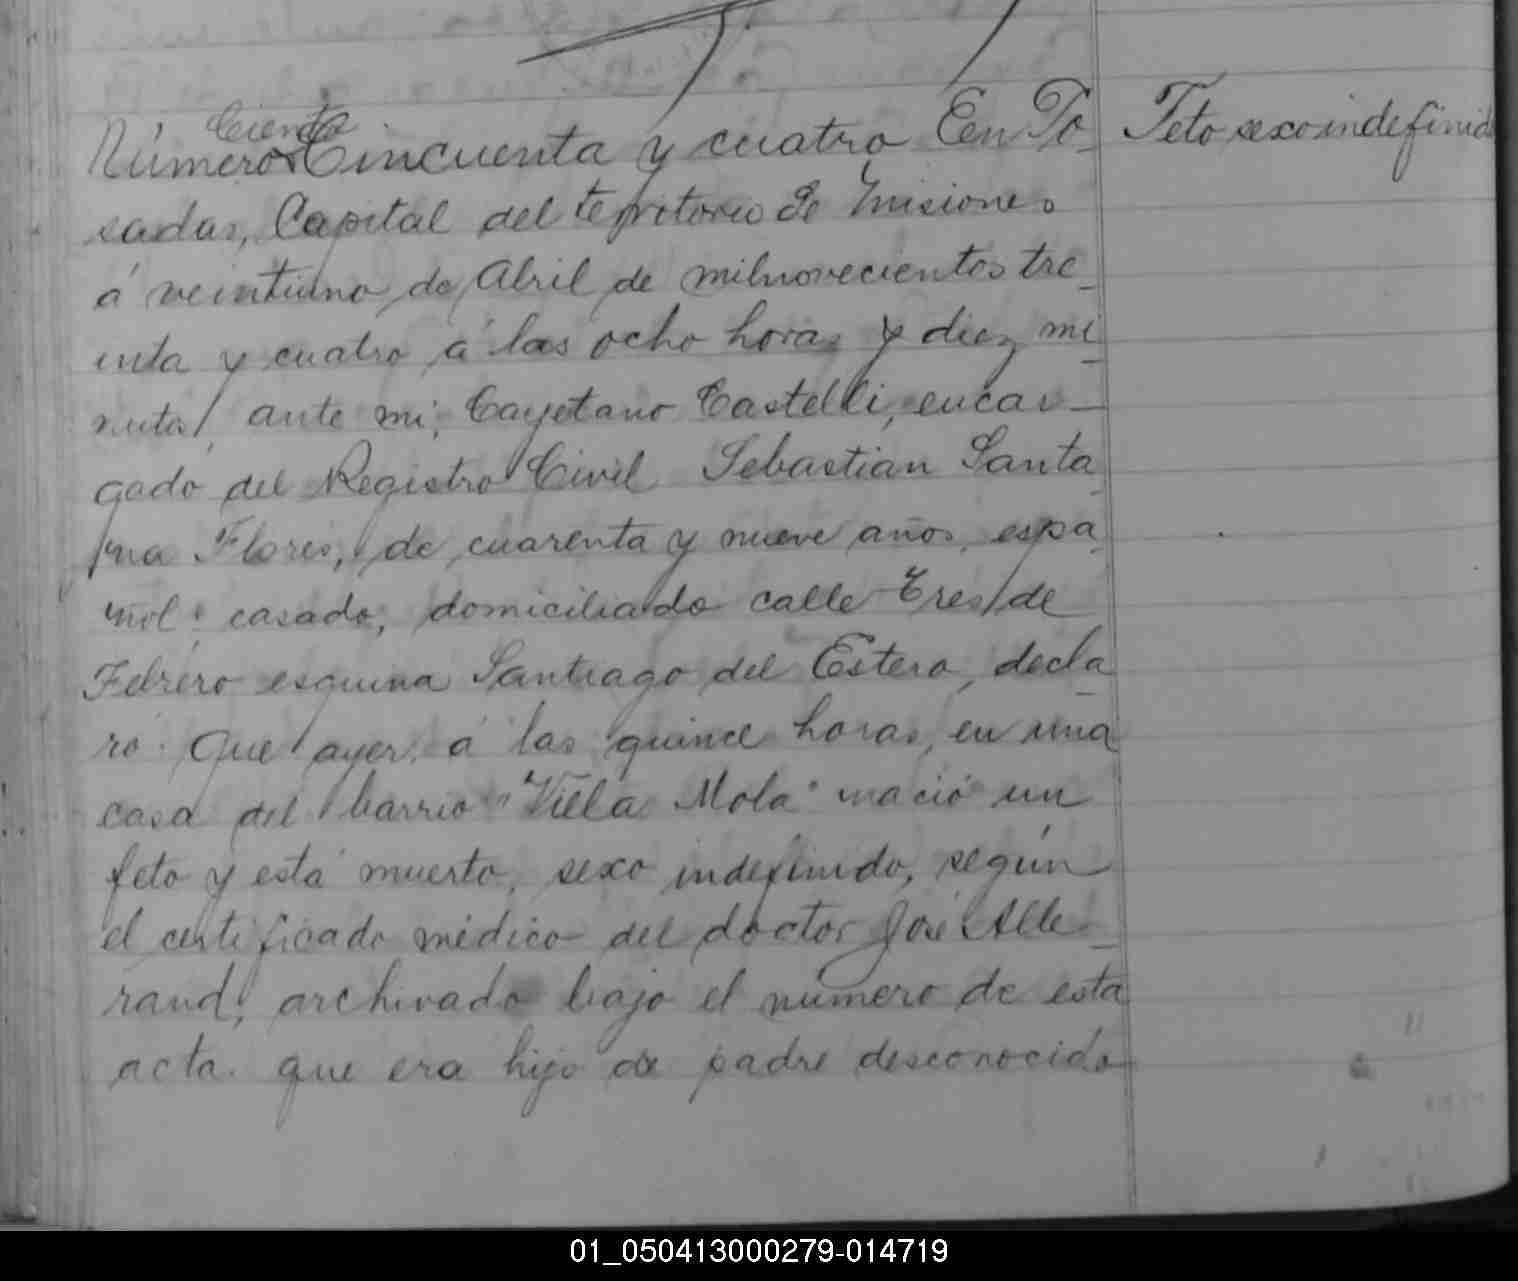 Ciento
Número Cincuenta y cuatro En Po_
sadas, Capital del territorio de Misiones
á veintiuno de Abril de milnovecientos tre_
inta y cuatro á las ocho horas y diez mi_
nutos, ante mi, Cayetano Castelli, encar_
gado del Registro Civil Sebastian Santa_
na Flores, de cuarenta y nueve años, espa_
ñol, casado, domiciliado calle Tres de
Febrero esquina Santiago del Estero, decla_
ró. Que ayer, á las quince horas, en una
casa del barrio "Villa Mola" nació un
feto y está muerto, sexo indefinido, según
el certificado médico del doctor José Alle_
rand, archivado bajo el numero de esta
acta. que era hijo de padre desconocido
Feto sexo indefinid
01_050413000279-014719